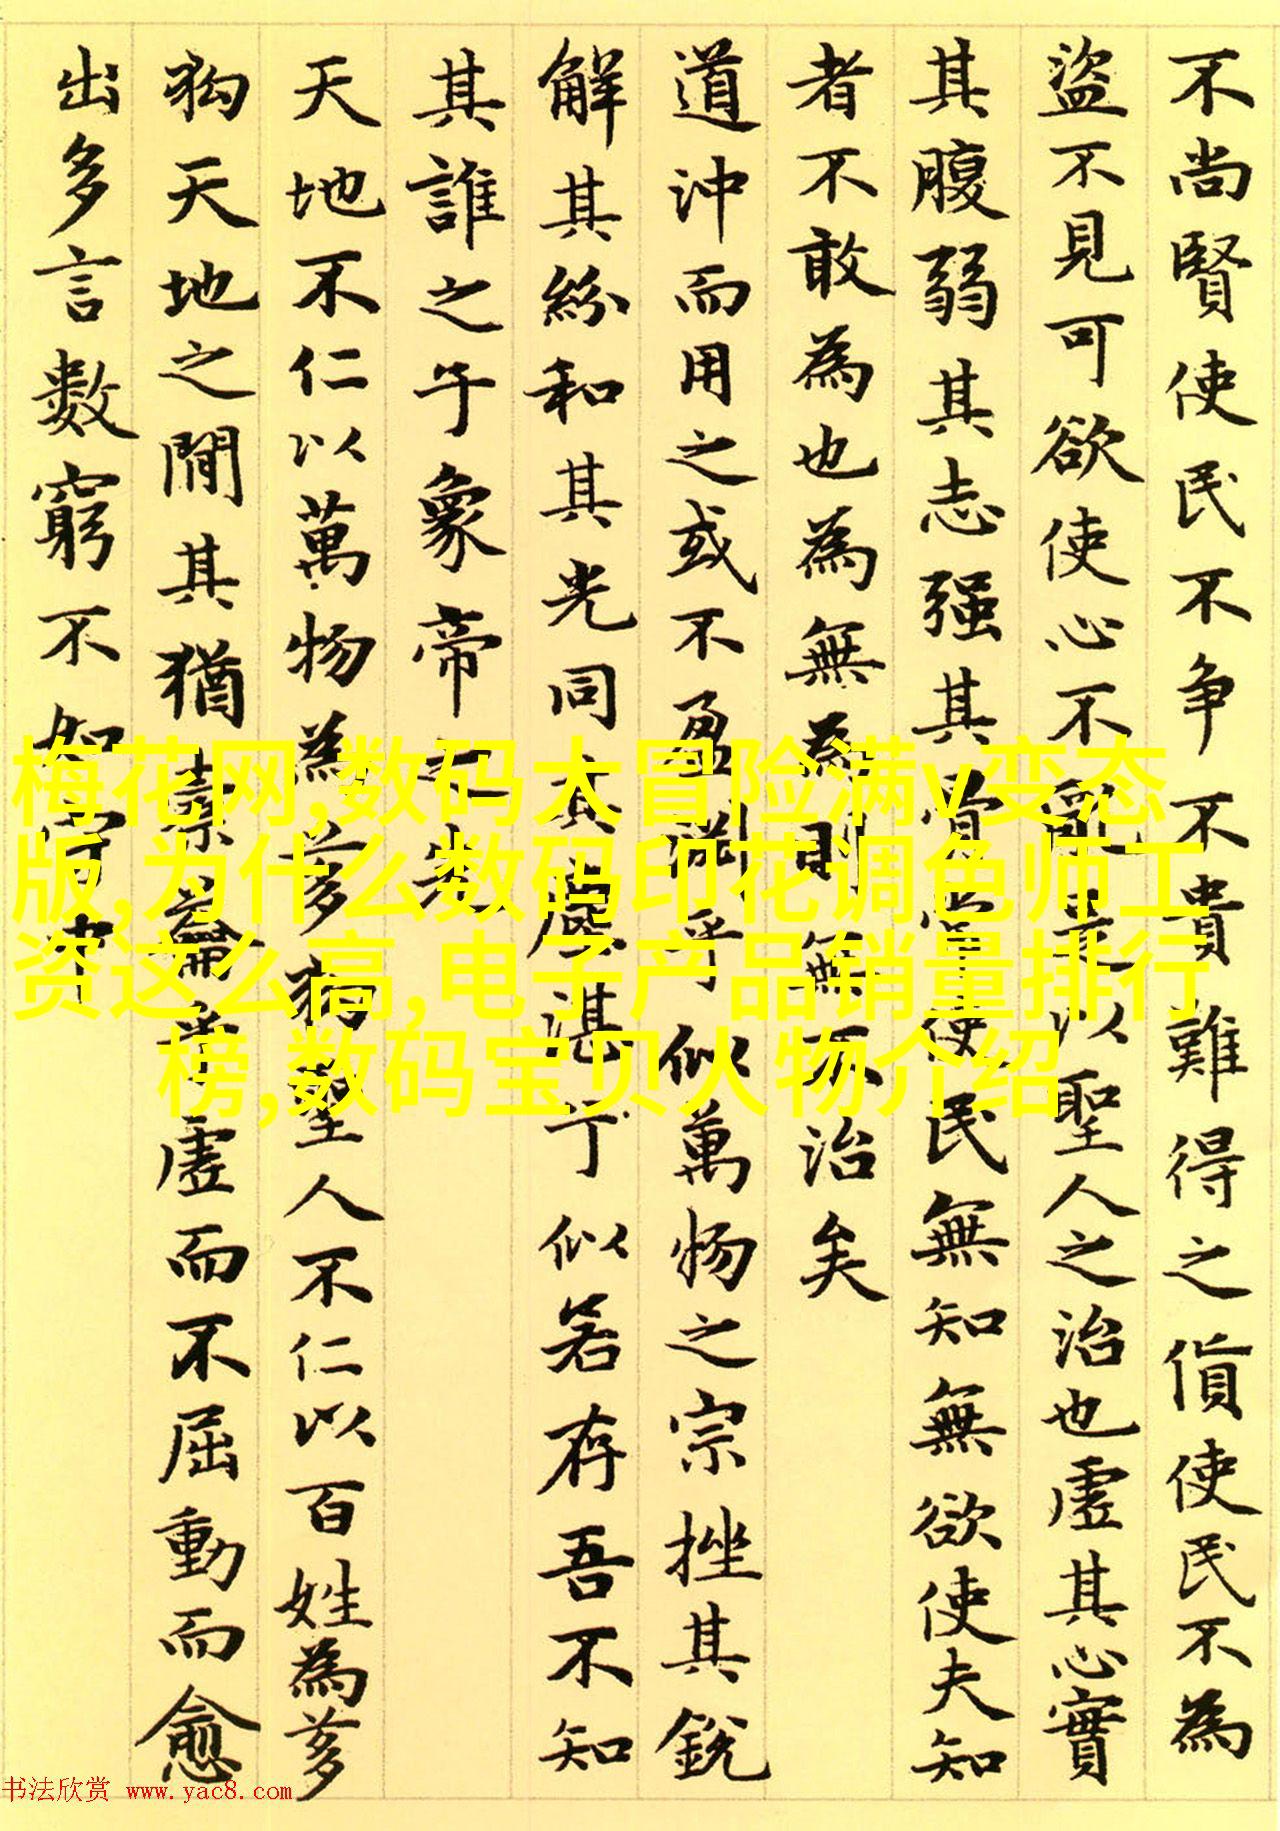 不尚賢使民不争不貴難得之貨使民不為
盜不見可欲使心不亂是以聖人之治也虛其心實
其腹弱其志强其骨常使民無知無欲使夫知
者不敢為也為無為則無不治矣
道沖而用之或不盈淵乎似萬物之宗挫其銳
解其紛和其光同其塵湛兮似若存吾不知
其誰之子象帝之先
天地不仁以萬物為芻狗聖人不仁以百姓為芻
狗天地之間其猶橐籥乎虛而不屈動而愈
出多言數窮不如守中
梅花网,数码大冒险满v变态
版,为什么数码印花调色师工
资这么高,电子产品销量排行
榜,数码宝贝人物介绍
书法欣赏 www.yac8.com